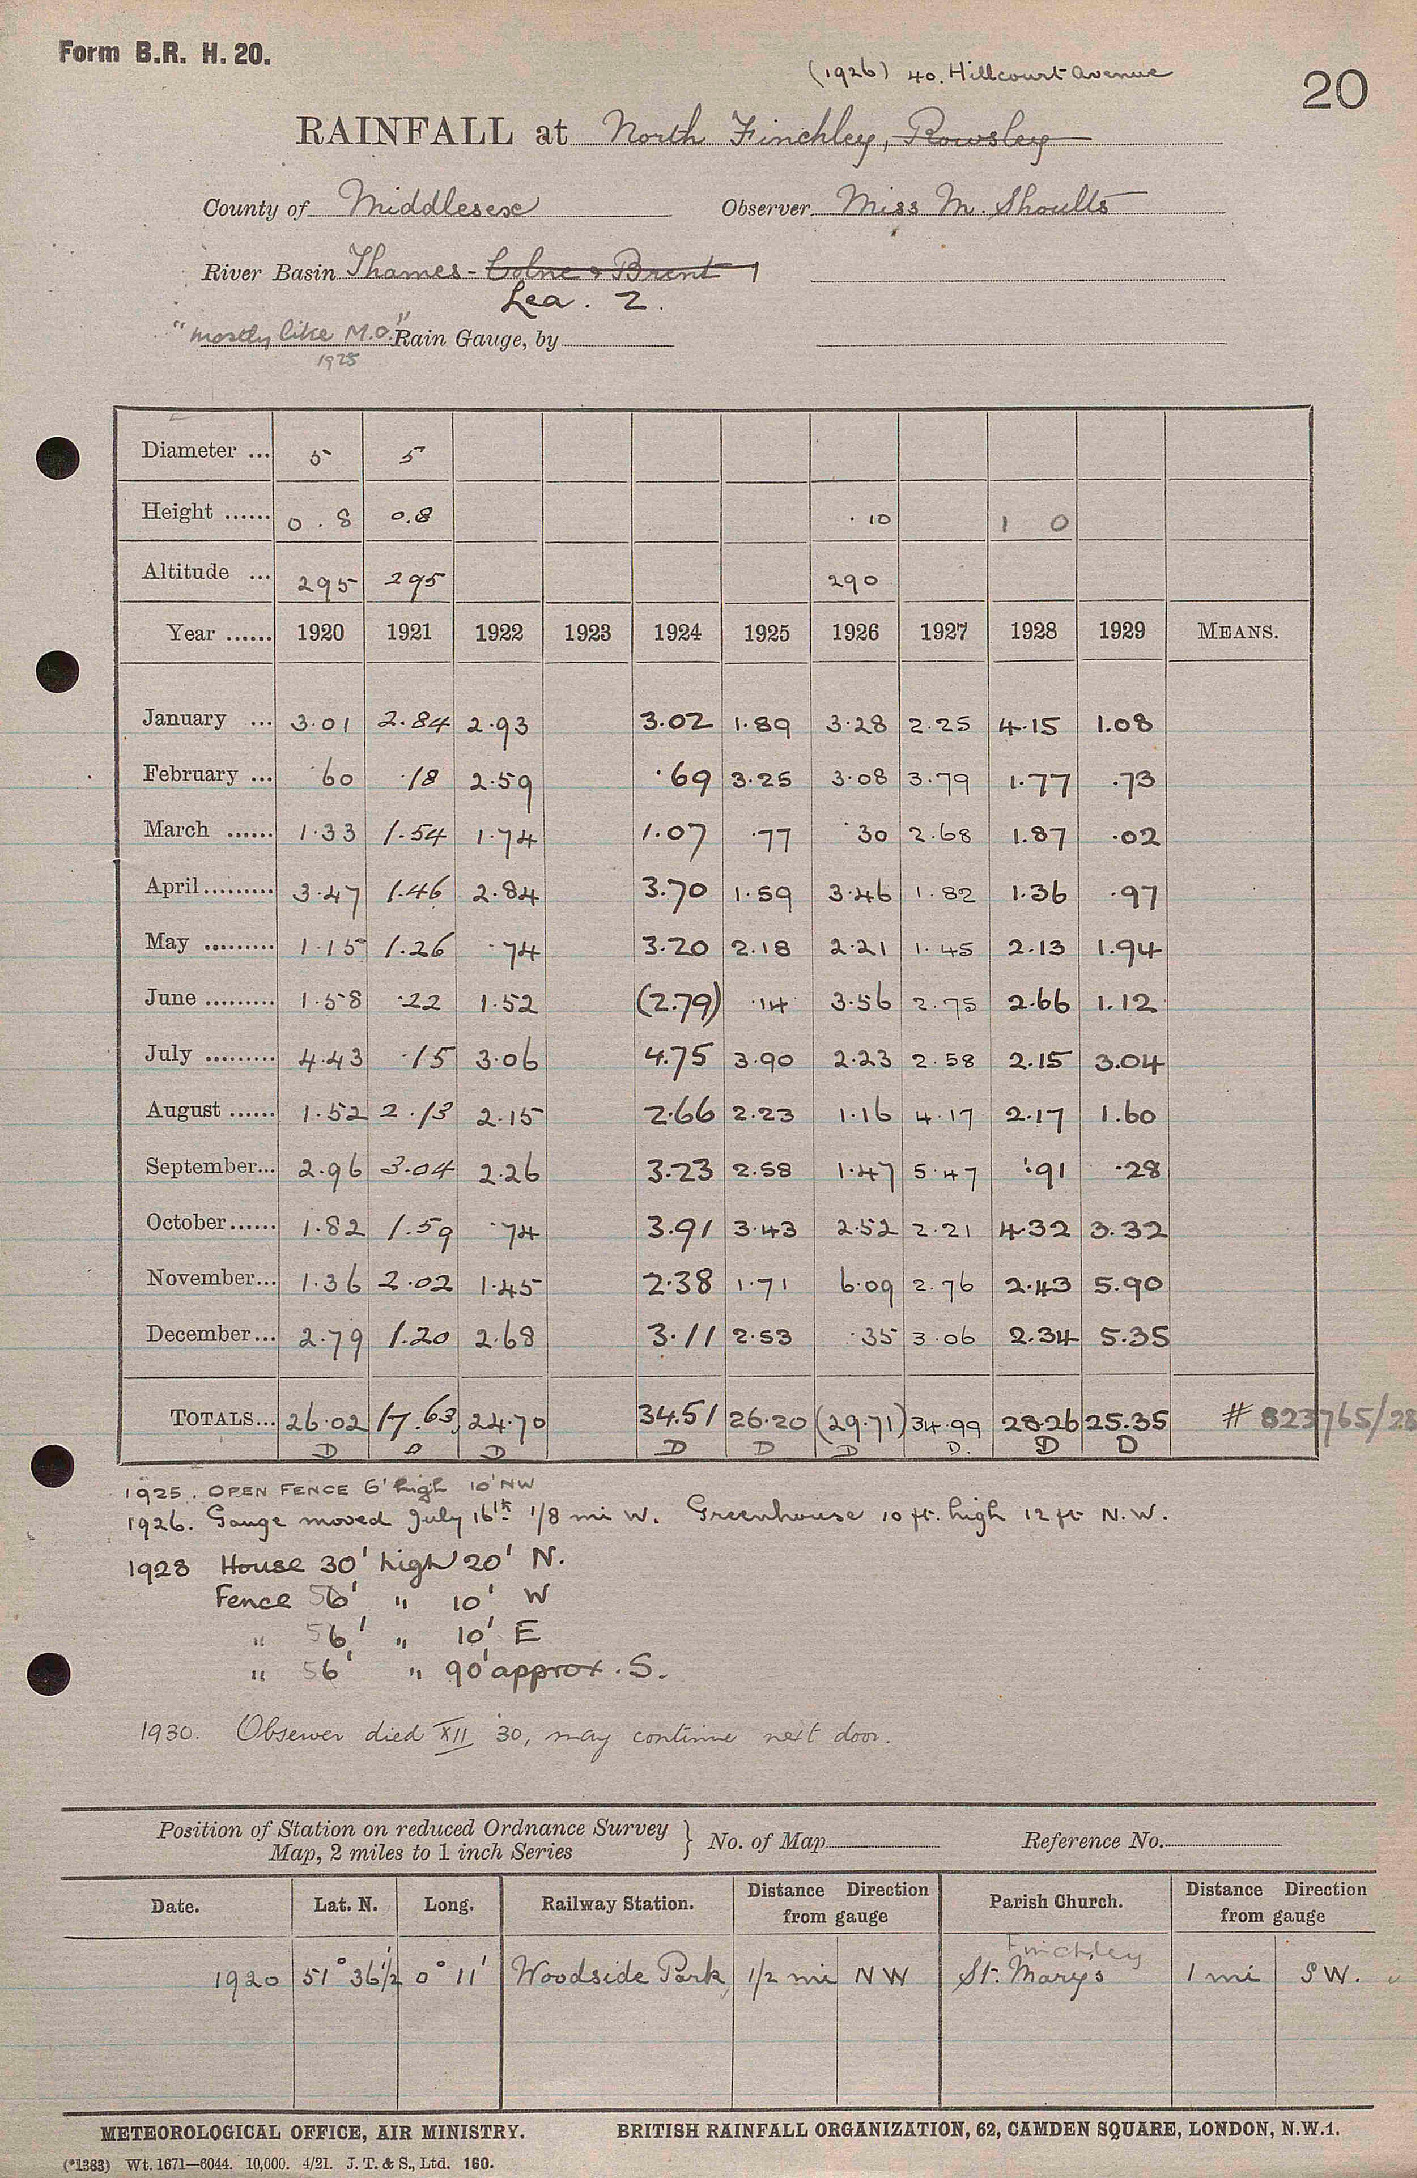 Form B.R. H. 20.
(1926) 40. Hillcourt Avenue
20
RAINFALL at North Finchley, Rowsley
County of Middlesex Observer Miss M. Shoults
River Basin Thames - Colne & Brent 1
Lea. 2.
"mostly like M.O." Rain Gauge, by
1925
Diameter ... 5 5
Height ...... 0.8 0.8 .10 1 0
Altitude ... 295 295 290
Year ...... 1920 1921 1922 1923 1924 1925 1926 1927 1928 1929 MEANS.
January ... 3.01 2.84 2.93 3.02 1.89 3.28 2.25 4.15 1.08
February ... .60 .18 2.59 .69 3.25 3.08 3.79 1.77 .73
March ...... 1.33 1.54 1.74 1.07 .77 .30 2.68 1.87 .02
April ......... 3.47 1.46 2.84 3.70 1.59 3.46 1.82 1.36 .97
May ......... 1.15 1.26 .74 3.20 2.18 2.21 1.45 2.13 1.94
June ......... 1.58 .22 1.52 (2.79) .14 3.56 2.75 2.66 1.12
July ......... 4.43 .15 3.06 4.75 3.90 2.23 2.58 2.15 3.04
August ...... 1.52 2.13 2.15 2.66 2.23 1.16 4.17 2.17 1.60
September... 2.96 3.04 2.26 3.23 2.58 1.47 5.47 .91 .28
October...... 1.82 1.59 .74 3.91 3.43 2.52 2.21 4.32 3.32
November... 1.36 2.02 1.45 2.38 1.71 6.09 2.76 2.43 5.90
December... 2.79 1.20 2.68 3.11 2.53 .35 3.06 2.34 5.35
TOTALS... 26.02 17.63 24.70 34.51 26.20 (29.71) 34.99 28.26 25.35 # 823765/28
D D D D D D D. D D
1925. OPEN FENCE 6' high 10' NW
1926. Gauge moved July 16th 1/8 mi W. Greenhouse 10 ft. high 12 ft N.W.
1928 House 30' high 20' N.
Fence 56' " 10' W
" 56' " 10' E
" 56' " 90' approx. S.
1930. Observer died XII '30, may continue next door.
Position of Station on reduced Ordnance Survey
Map, 2 miles to 1 inch Series } No. of Map Reference No.
Date. Lat. N. Long. Railway Station. Distance Direction from gauge Parish Church. Distance Direction from gauge
Finchley
1920 51° 36½' 0° 11' Woodside Park, 1/2 mi NW St. Mary's 1 mi SW.
METEOROLOGICAL OFFICE, AIR MINISTRY. BRITISH RAINFALL ORGANIZATION, 62, CAMDEN SQUARE, LONDON, N.W.1.
(*1383) Wt. 1671—6044. 10,000. 4/21. J. T. & S., Ltd. 160.